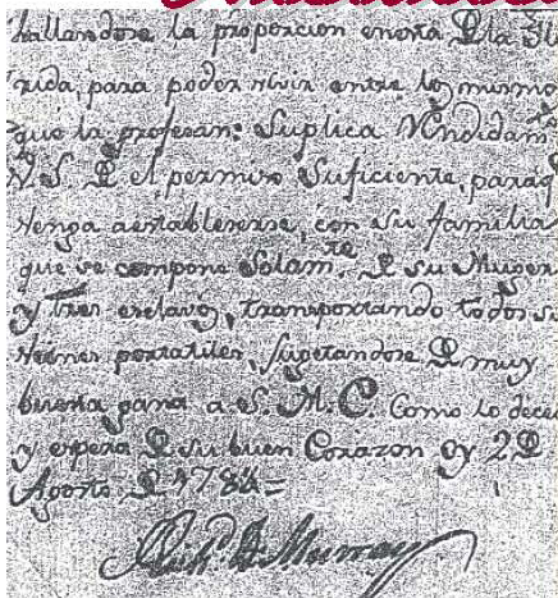 hallandose la proporcion en esta De la Flo
rida, para poder vivir entre los mismos
que la profesan: Suplica Rendidam.te
V. S. De el permiso Suficiente, para q
venga a establecerse, con su familia
que se compone Solam.te De su Muger
y tres esclavos, transportando todos su
vienes portatiles, sugetandose De muy
buena gana a S. M. C. Como lo dece
y espera De su buen Corazon oy 2 De
Agosto De 1784=
Rich.d Murray